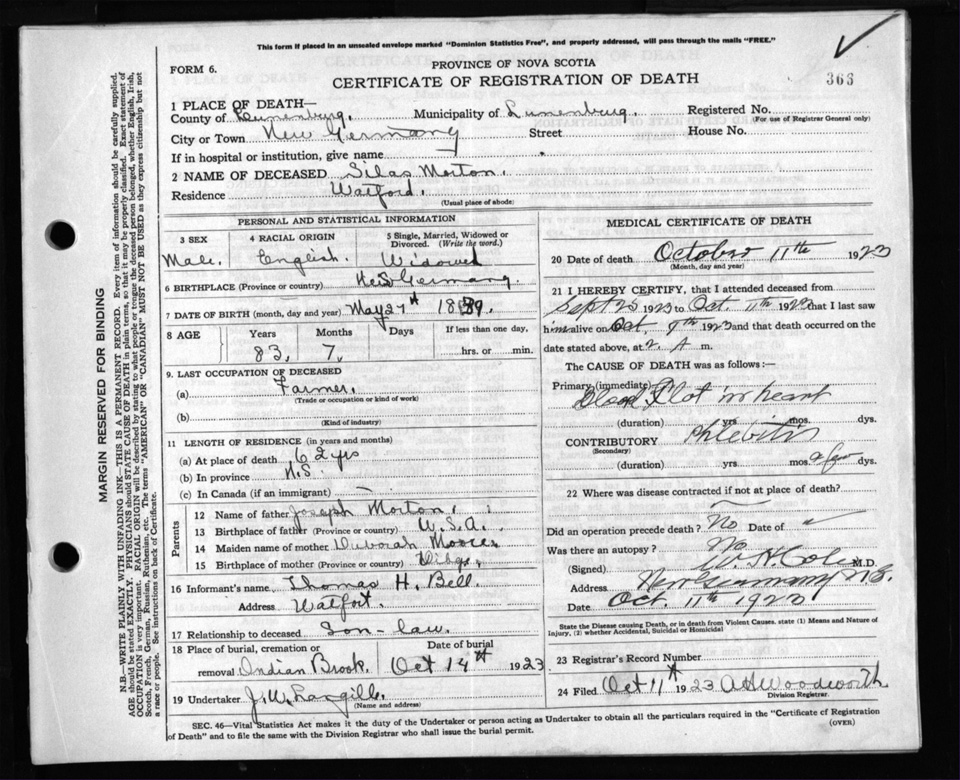 This form if placed in an unsealed envelope marked "Dominion Statistics Free", and properly addressed, will pass through the mails "FREE."
FORM 6.
PROVINCE OF NOVA SCOTIA
CERTIFICATE OF REGISTRATION OF DEATH
363
1 PLACE OF DEATH—
County of Lunenburg. Municipality of Lunenburg. Registered No.
(For use of Registrar General only)
City or Town New Germany Street House No.
If in hospital or institution, give name
2 NAME OF DECEASED Silas Morton.
Residence Walford.
(Usual place of abode)
PERSONAL AND STATISTICAL INFORMATION
3 SEX 4 RACIAL ORIGIN 5 Single, Married, Widowed or Divorced. (Write the word.)
Male. English. Widowed
6 BIRTHPLACE (Province or country) Germany
7 DATE OF BIRTH (month, day and year) May 27th 1839.
8 AGE Years Months Days If less than one day,
83, 7, hrs. or min.
9. LAST OCCUPATION OF DECEASED
(a) Farmer.
(Trade or occupation or kind of work)
(b)
(Kind of industry)
11 LENGTH OF RESIDENCE (in years and months)
(a) At place of death 62 yrs
(b) In province N.S.
(c) In Canada (if an immigrant) —
Parents
12 Name of father Joseph Morton.
13 Birthplace of father (Province or country) U.S.A.
14 Maiden name of mother Deborah
15 Birthplace of mother (Province or country)
16 Informant's name Thomas H. Bell.
Address Walfort.
17 Relationship to deceased Son-law.
18 Place of burial, cremation or removal Indian Brook. Date of burial Oct 14th 1923
19 Undertaker J. W. Langille.
(Name and address)
MEDICAL CERTIFICATE OF DEATH
20 Date of death October 11th 1923
(Month, day and year)
21 I HEREBY CERTIFY, that I attended deceased from
Sept 25 1923 to Oct. 11th 1923 that I last saw
him alive on Oct. 9th 1923 and that death occurred on the
date stated above, at 2 A m.
The CAUSE OF DEATH was as follows:—
Primary (immediate)
Blood Clot in heart
(duration) yrs. mos. dys.
CONTRIBUTORY Phlebitis
(Secondary)
(duration) yrs. mos. a few dys.
22 Where was disease contracted if not at place of death?
Did an operation precede death? No Date of
Was there an autopsy? No
(Signed) W. H. Cole M.D.
Address New Germany N.S.
Date Oct. 11th 1923
State the Disease causing Death, or in death from Violent Causes, state (1) Means and Nature of Injury, (2) whether Accidental, Suicidal or Homicidal
23 Registrar's Record Number
24 Filed Oct 11th 1923 A H Woodworth
Division Registrar.
SEC. 46—Vital Statistics Act makes it the duty of the Undertaker or person acting as Undertaker to obtain all the particulars required in the "Certificate of Registration
of Death" and to file the same with the Division Registrar who shall issue the burial permit.
(OVER)
MARGIN RESERVED FOR BINDING
N.B.—WRITE PLAINLY WITH UNFADING INK—THIS IS A PERMANENT RECORD. Every item of information should be carefully supplied.
AGE should be stated EXACTLY. PHYSICIANS should STATE CAUSE OF DEATH in plain terms, so that it may be properly classified. Exact statement of
OCCUPATION is very important. RACIAL ORIGIN will be described by stating to what people or tongue the deceased person belonged, whether English, Irish,
Scotch, French, German, Russian, Ruthenian, etc. The terms "AMERICAN" or "CANADIAN" MUST NOT BE USED as they express citizenship but not
a race or people. See instructions on back of Certificate.